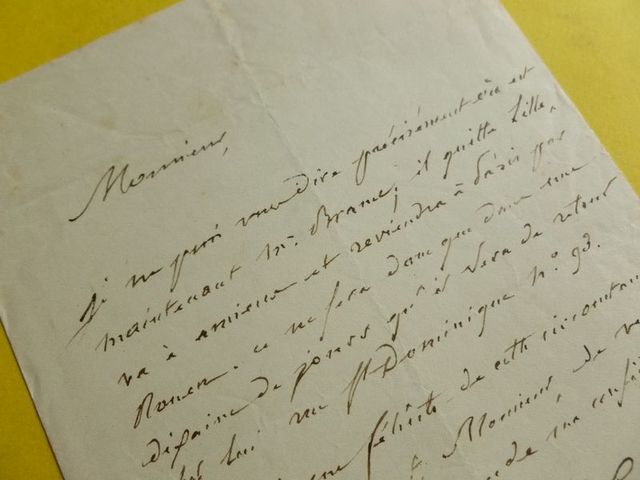 Monsieur,
Je ne puis vous dire précisément où est
maintenant Mr. Brame; il quitte Lille,
va à amiens et reviendra à Paris par
Rouen. ce ne sera donc que dans une
dixaine de jours qu'il sera de retour
lui rue St Dominique no. 93.
me félicite de cette circonstan
Monsieur, de
de ma